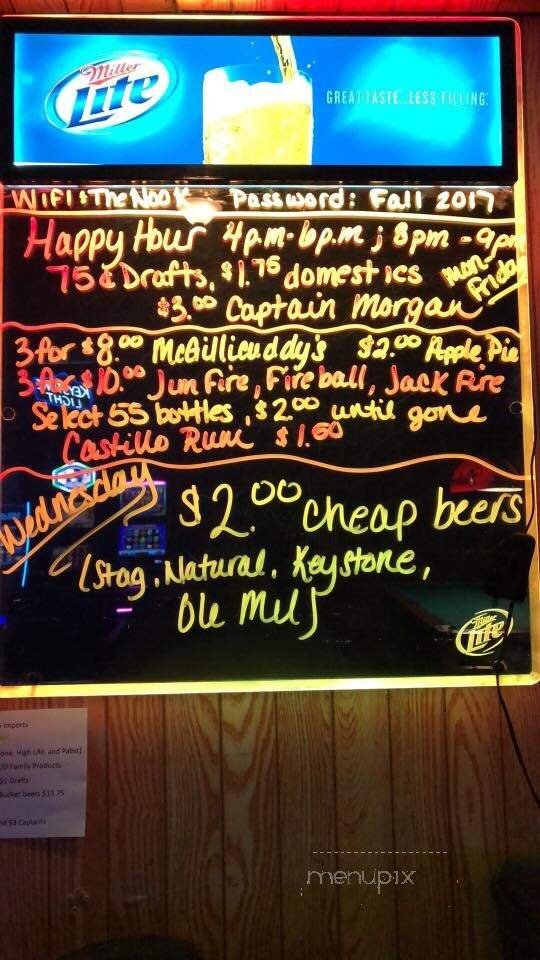 Miller
Lite
GREAT TASTE...LESS FILLING.
WIFI: The Nook Password: Fall 2017
Happy Hour 4p.m-6p.m ; 8pm-9pm
75¢ Drafts, $1.75 domestics Mon-Friday
$3.00 Captain Morgan
3 for $8.00 McGillicuddy's $2.00 Apple Pie
3 for $10.00 Jim Fire, Fireball, Jack Fire
Select 55 bottles, $2.00 until gone
Castillo Rum $1.50
Wednesday
$2.00 cheap beers
(Stag, Natural, Keystone,
Ole Mil)
Miller
Lite
KEYSTONE
LIGHT
Imports
one, High Life, and Pabst)
Family Products
$1 Drafts
Bucket beers $13.75
nd $3 Captains
menupix